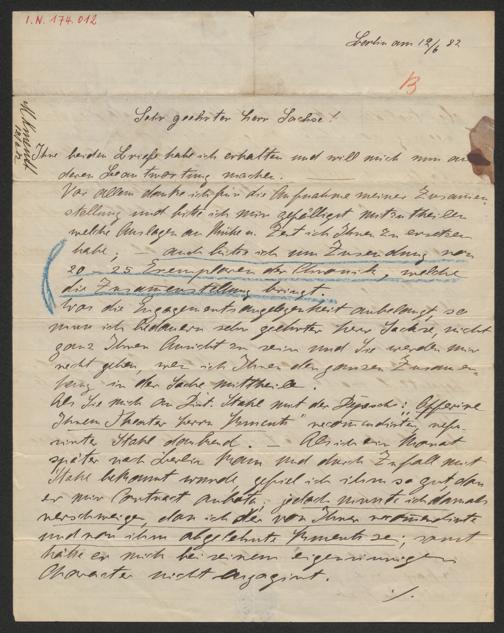 I.N. 174.012
Berlin am 19/6 82
B
Sehr geehrter Herr Sachse!
Ihre beiden Briefe habe ich erhalten und will mich nun an
deren Beantwortung machen.
Vor allem danke ich für die Aufnahme meiner Zusammen
stellung und bitte ich mir gefälligst mitzutheilen
welche Auslagen an Mühe u. Zeit ich Ihnen zu ersetzen
habe, – auch bitte ich um Zusendung von
20 – 25 Exemplaren der Chronik, welche
die Zusammenstellung bringt.
Was die Engagementsangelegenheit anbelangt, so
muss ich bedauern sehr geehrter Herr Sachse, nicht
ganz Ihrer Ansicht zu sein und Sie werden mir
recht geben, wen ich Ihnen den ganzen Zusamen
hang in der Sache mittheile.
Als Sie mich an Dir. Stake mit der Depesche: Offerire
Ihnen Theater Herrn recomandirten, refü-
sirte Stake dankend. – Als ich ein Monat
später nach Berlin kam und durch Zufall mit
Stake bekannt wurde gefiel ich ihm so gut dan
er mir Contract anbot; jedoch musste ich damals
verschweigen, dan ich der von Ihnen recomandirte
und von ihm abgelehnte sei, sonst
hätte er mich bei seinem eigensinnigen
Character nicht engagirt.
./.